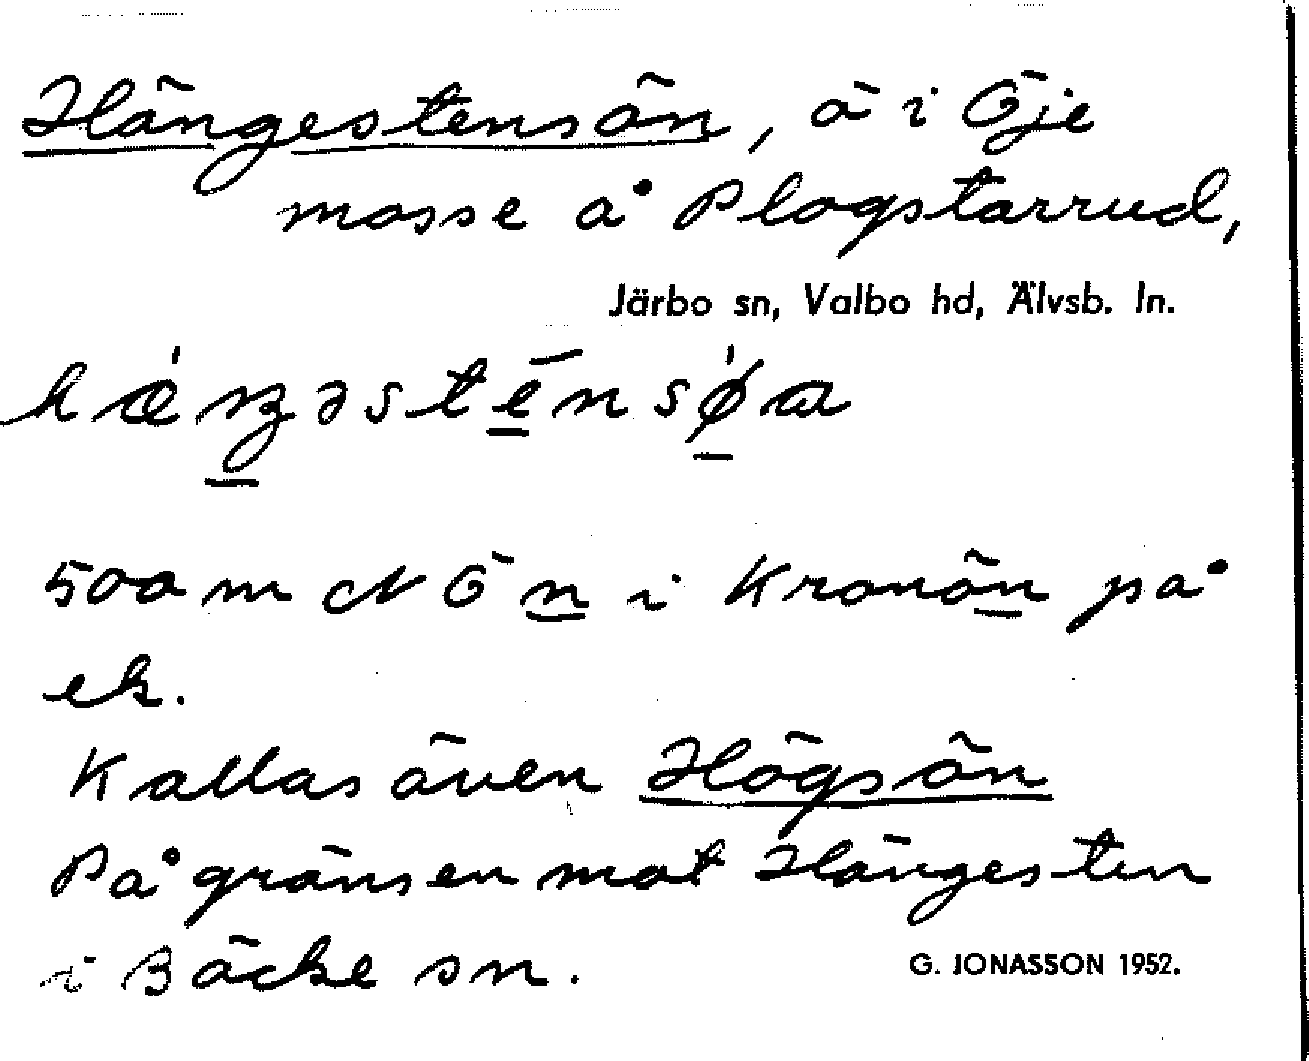 Hängestensön, ö i Öje
mosse å Plogstarrud,
Järbo sn, Valbo hd, Älvsb. ln.
hǽŋəstēnsǿa
500 m N Ön i Kronön på
ek.
Kallas även Högsön
På gränsen mot Hängesten
i Bäcke sn.
G. JONASSON 1952.